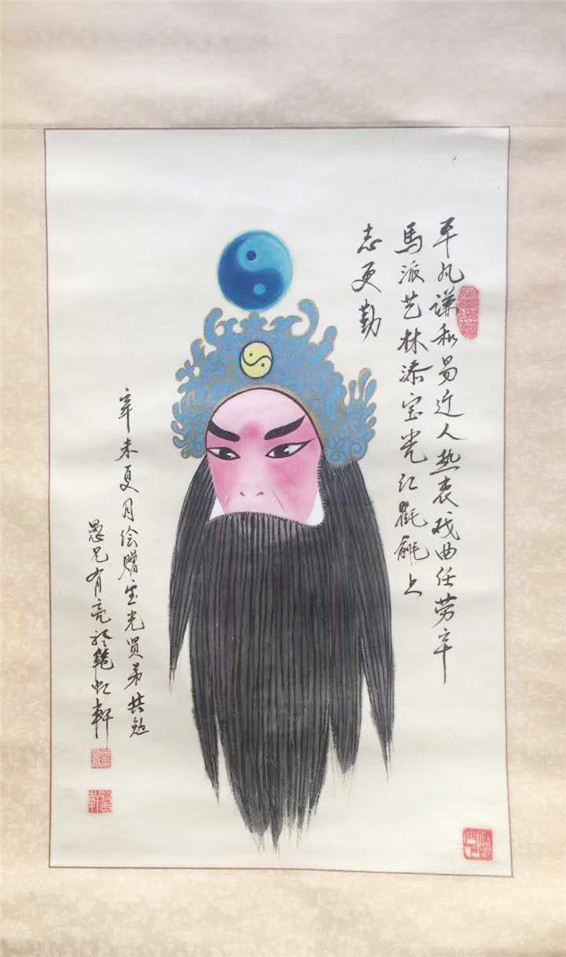 平凡谦和易近人热衷戏曲任劳辛
馬派艺林添宝光红氍毹上
志更勤
辛未夏月绘赠宝光贤弟共勉
愚兄有亮於虹軒